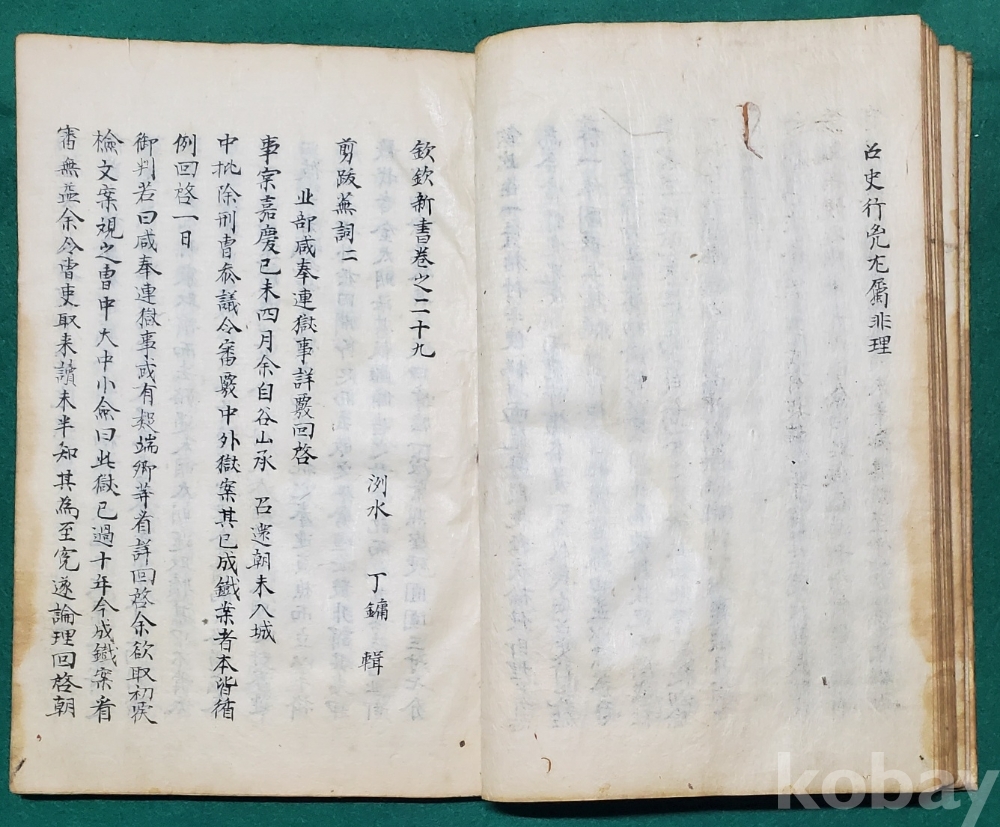 召史行兇尤屬非理
欽欽新書卷之二十九
洌水 丁鏞 輯
剪跋蕪詞二
北部咸奉連獄事詳覆回啓
事案嘉慶己未四月余自谷山承 召還朝未入城
中批除刑曹叅議令審覆中外獄案其已成鐵案者本皆循
例回啓一日
御判若曰咸奉連獄事或有疑端卿等看詳回啓余欲取初覆
檢文案視之曹中大中小僉曰此獄已過十年今成鐵案看
審無益余令曹吏取来讀未半知其為至寃遂論理回啓朝
kobay